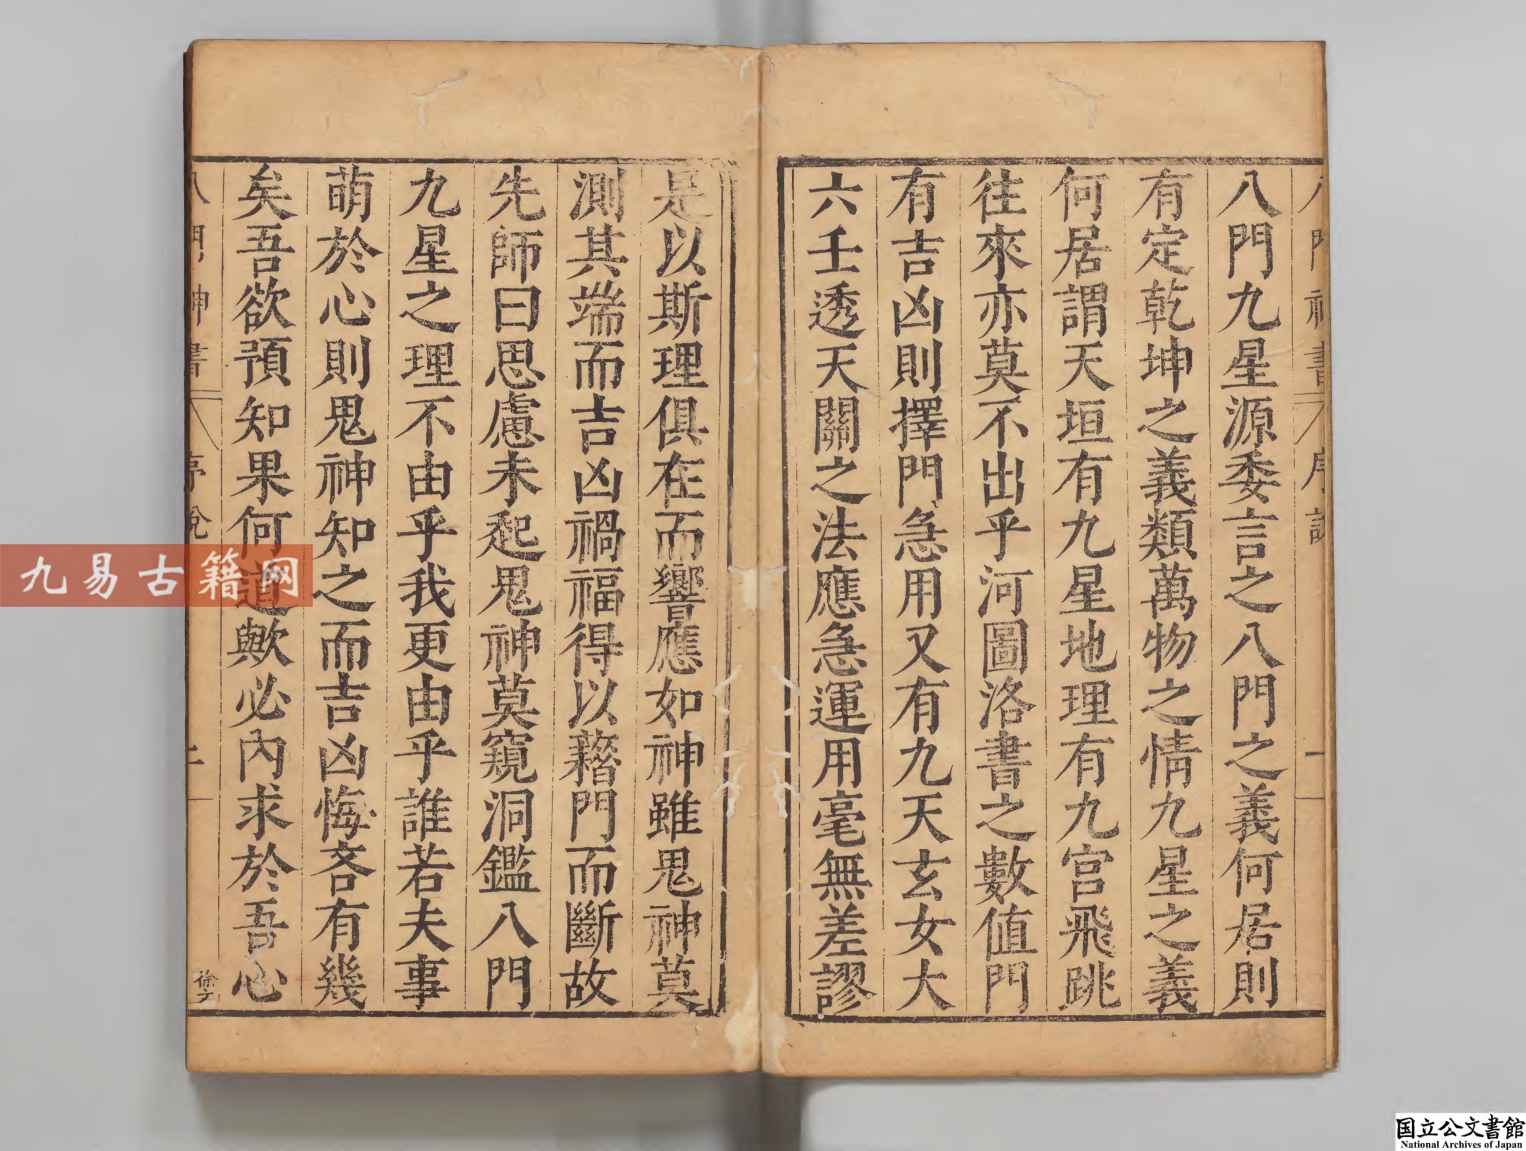 八門神書 序說 一
八門九星源委言之八門之義何居則
有定乾坤之義類萬物之情九星之義
何居謂天垣有九星地理有九宮飛跳
往來亦莫不出乎河圖洛書之數值門
有吉凶則擇門急用又有九天玄女大
六壬透天關之法應急運用毫無差謬
是以斯理俱在而響應如神雖鬼神莫
測其端而吉凶禍福得以藉門而斷故
先師曰思慮未起鬼神莫窺洞鑑八門
九星之理不由乎我更由乎誰若夫事
萌於心則鬼神知之而吉凶悔吝有幾
矣吾欲預知果何道歟必內求於吾心
八門神書 序說 二
九易古籍网
国立公文書館
National Archives of Japan